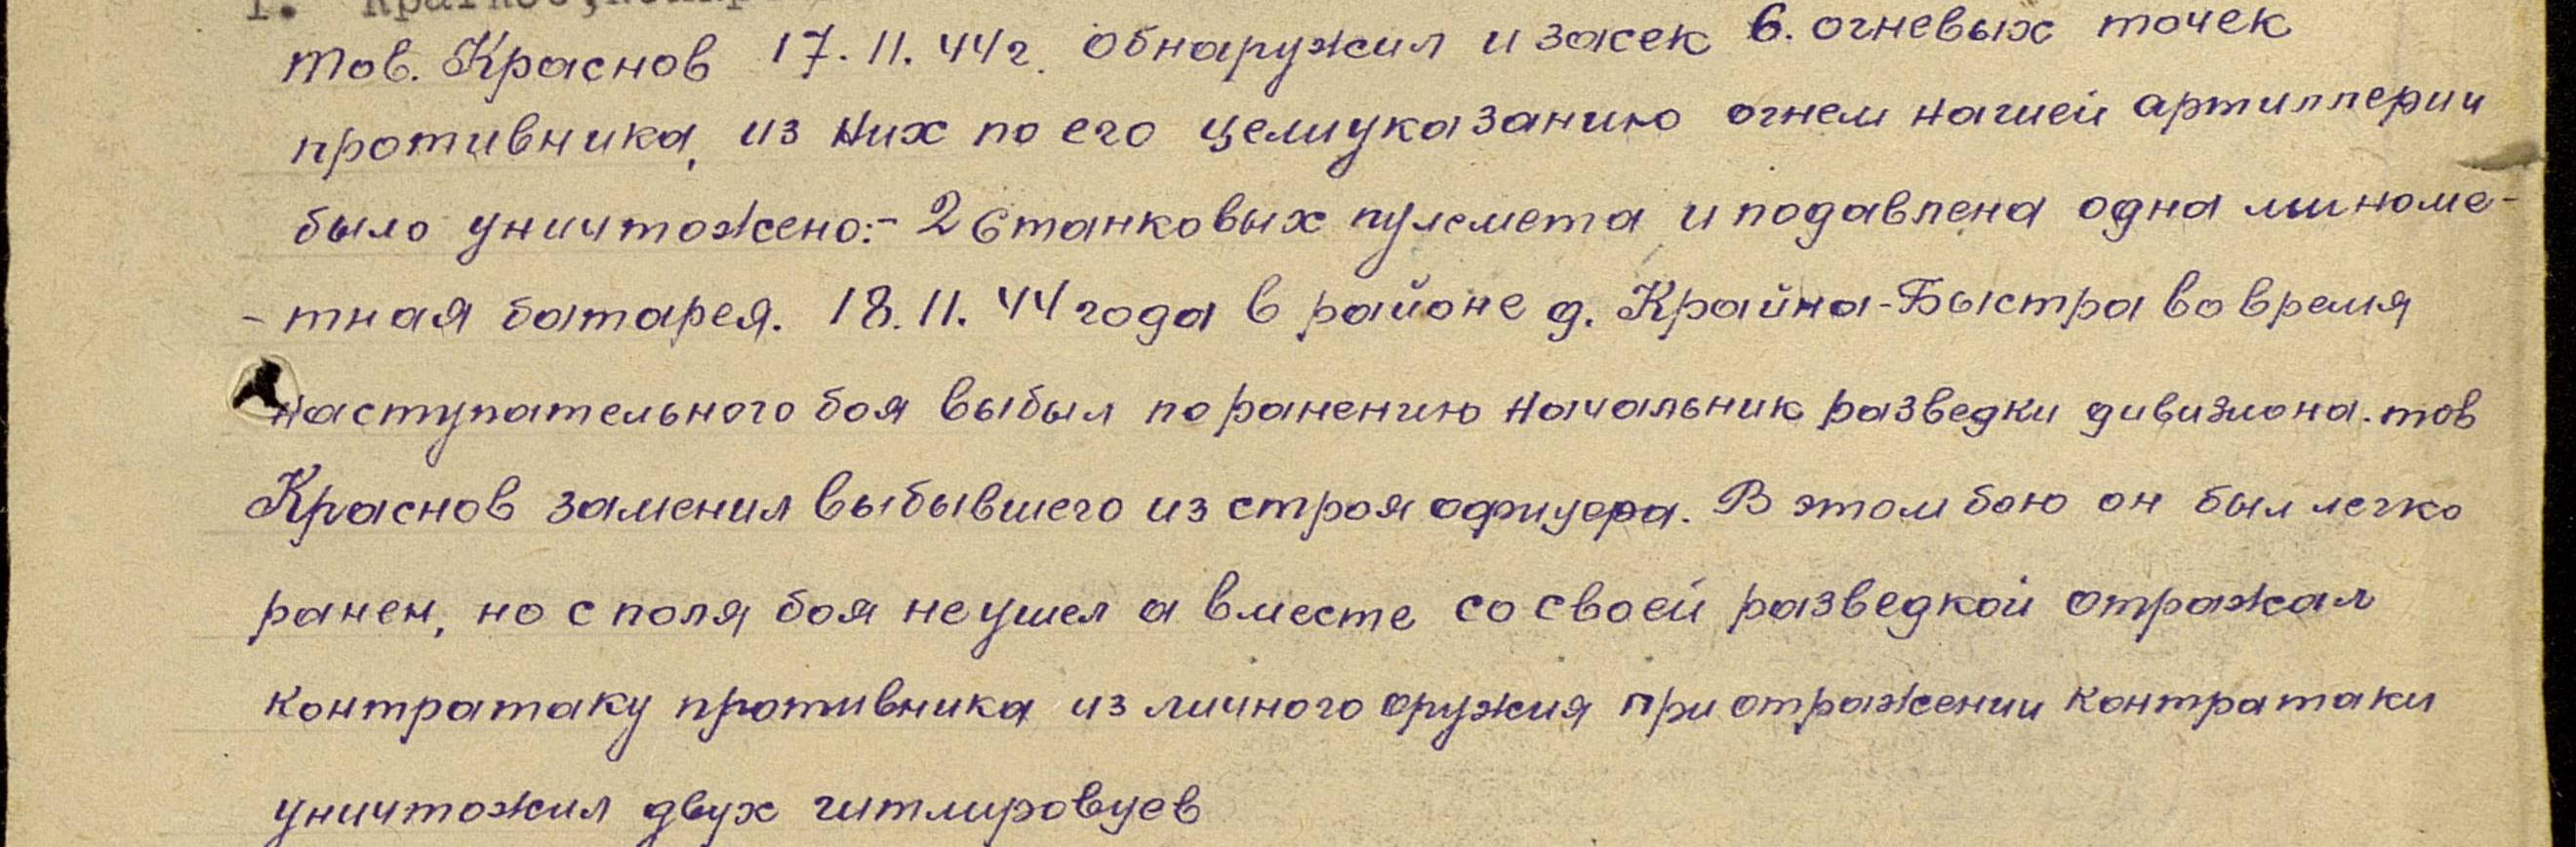 1. Краткое, конкр
тов. Краснов 17.11.44г. обнаружил и засек 6. огневых точек
противника, из них по его целиуказанию огнем нашей артиллерии
было уничтожено:- 2 станковых пулемета и подавлена одна миноме-
- тная батарея. 18.11.44 года в районе д. Крайна-Быстра во время
наступательного боя выбыл по ранению начальник разведки дивизиона. тов
Краснов заменил выбывшего из строя офицера. В этом бою он был легко
ранен, но с поля боя не ушел а вместе со своей разведкой отражал
контратаку противника из личного оружия при отражении контратаки
уничтожил двух гитлировцев